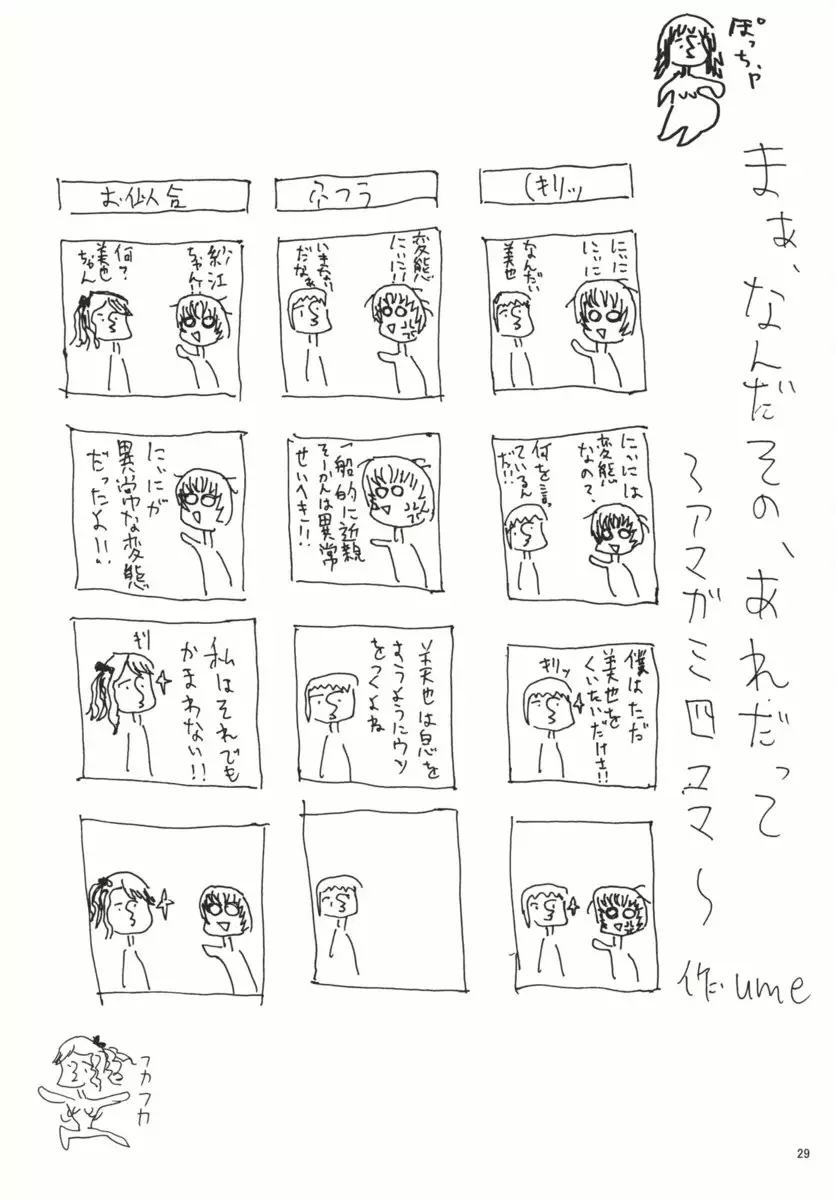 ぽっちゃ
まぁ、なんだその、あれだって
～アマガミ四コマ～
作:ume
(キリッ
にぃに
にぃに
なんだい
美也
にぃには
変態
なの?
何を言っ
ているん
だ!!
僕はただ
美也を
くいたいだけさ!!
キリッ
ふつう
変態
にぃに!!
いまさない
だなぁ
一船的に近親
そーかんは異常
せいへき!!
美也は息を
すうようにウソ
をつくよね
お似合
紗江
ちゃん!!
何?
美也
ちゃん
にぃにが
異常な変態
だったよ!!
キリ
私はそれでも
かまわない!!
フカフカ
29